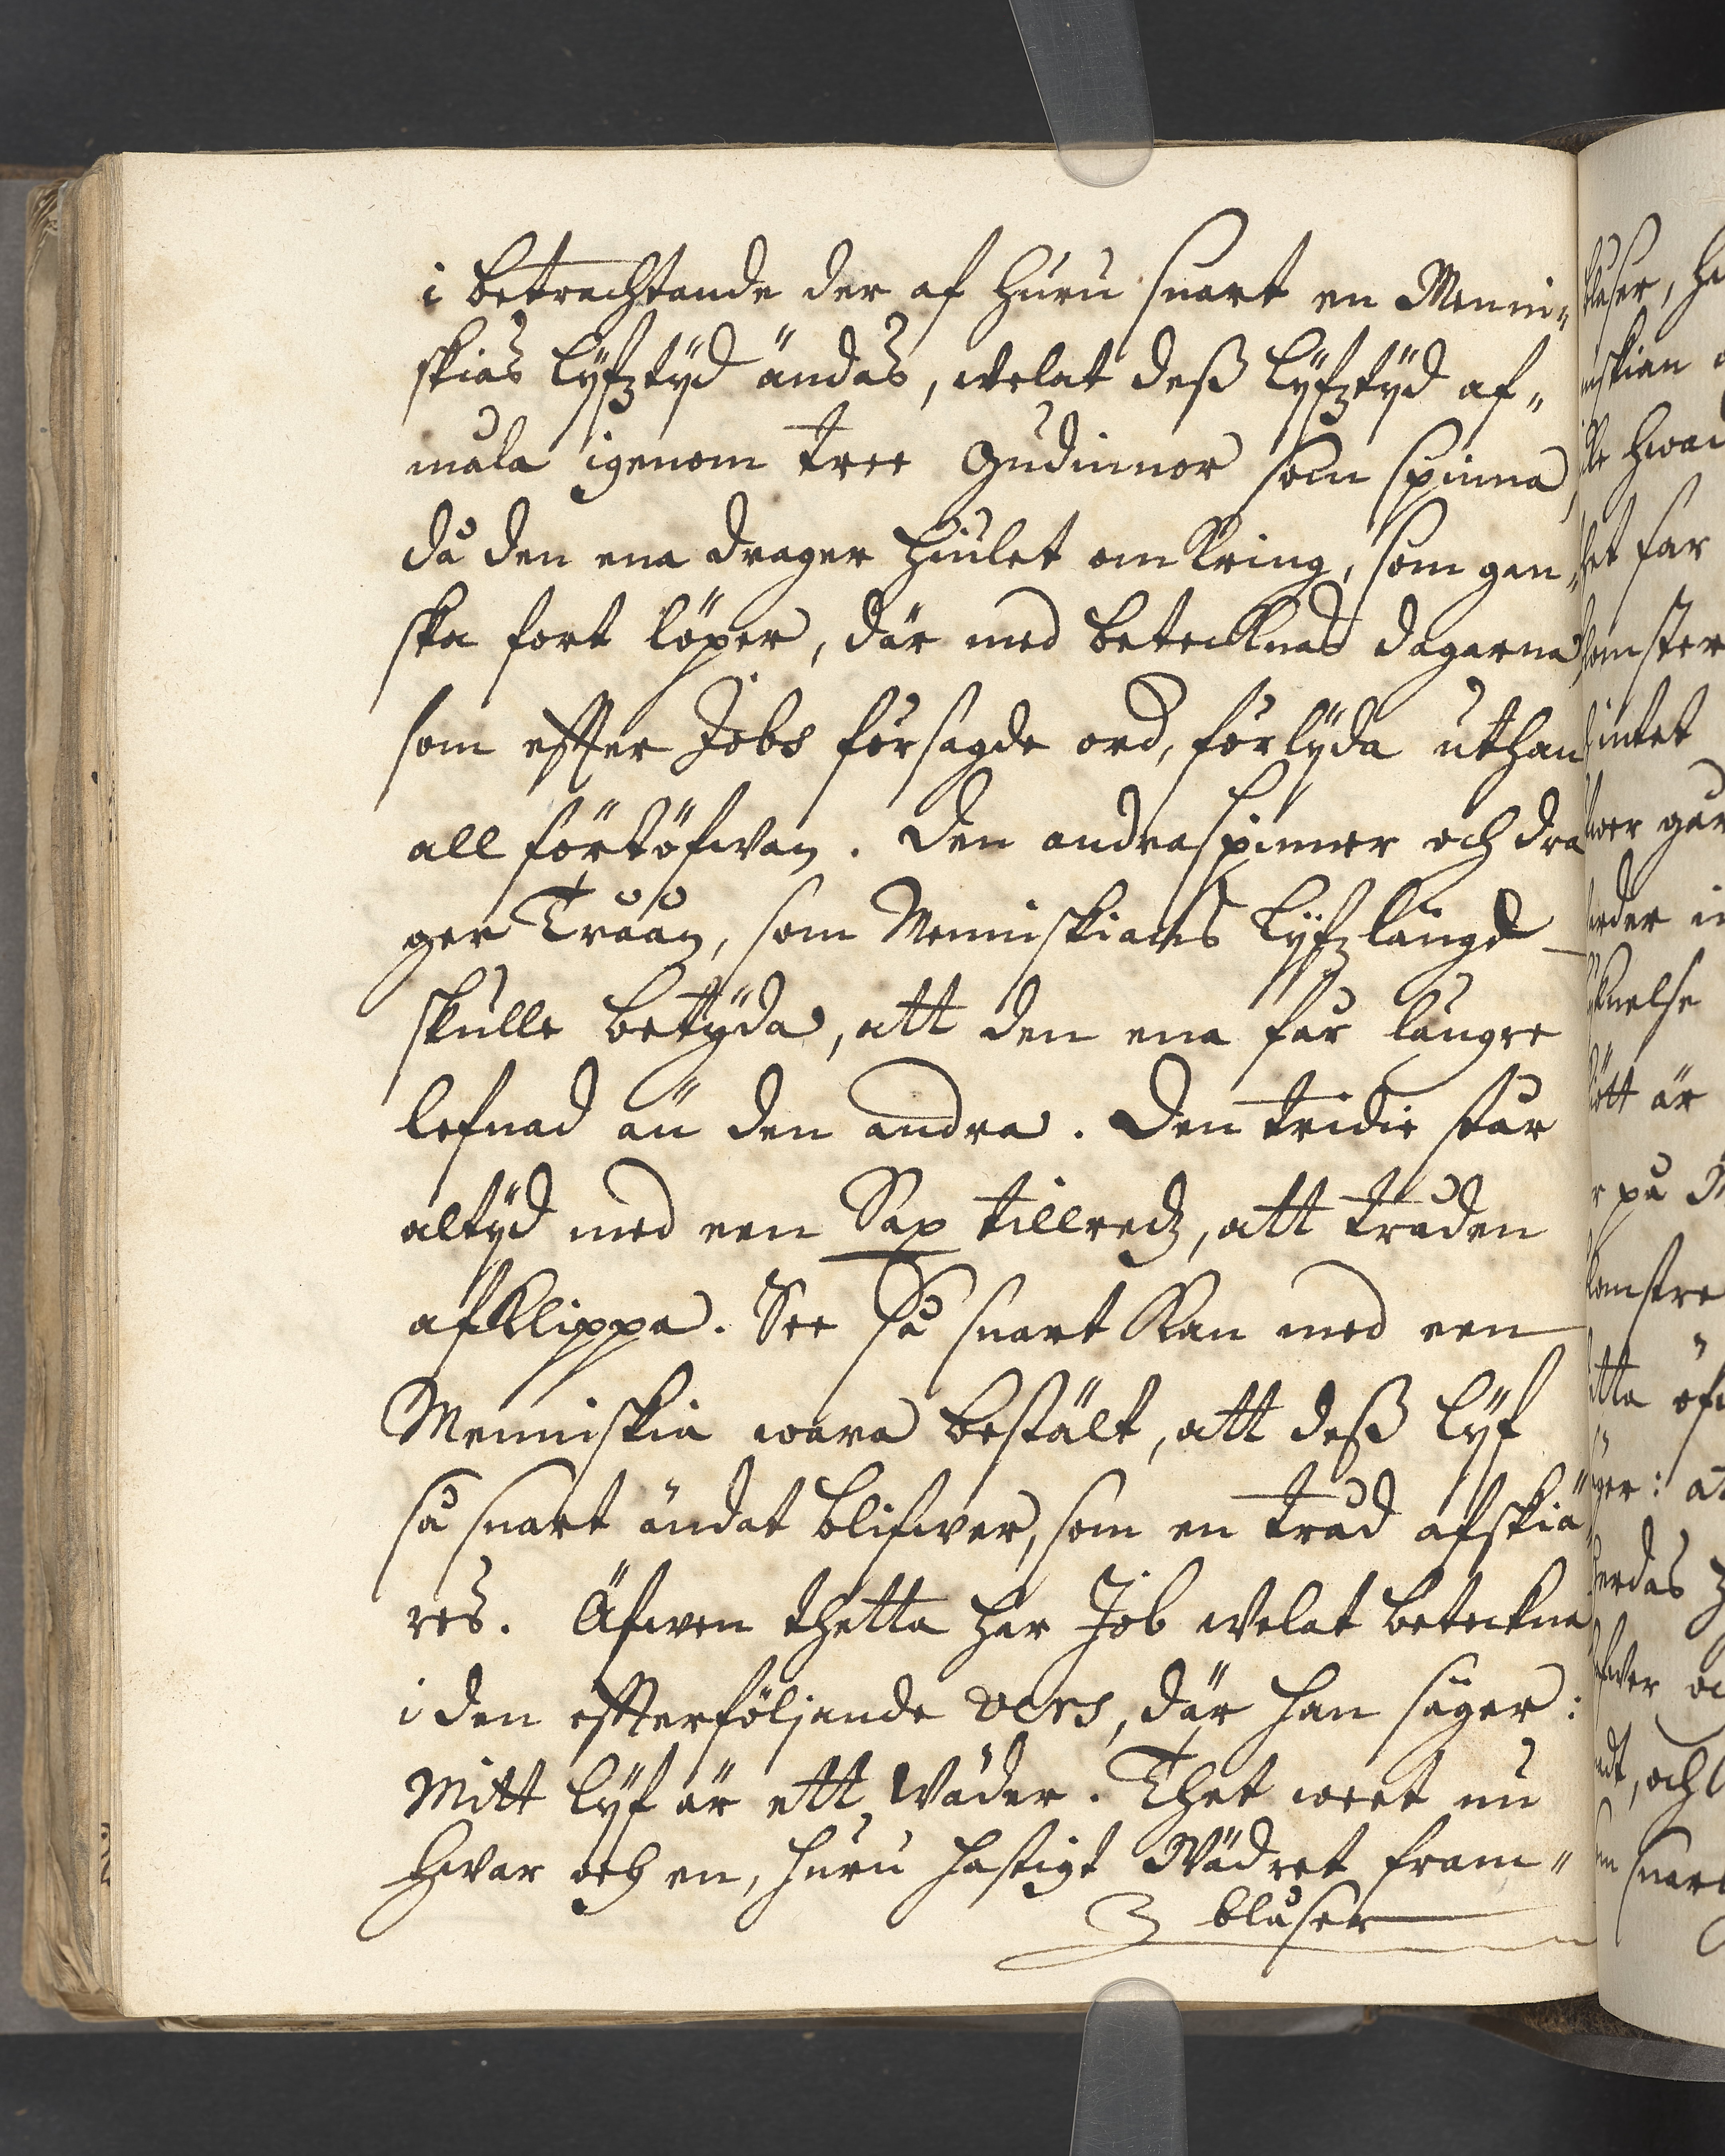 i betrachtande der af huru snart en Menni„
skias lyfztyd ändas, welat deß lyfztyd af„
måla igenom tree Gudinnor som spinna,
då den ena drager hiulet omkring, som gan„
ska fort löper, där med betecknas dagarna
som effter Jobs försagde ord, förlyda uthan
all förtöfwan. Den andra spinner och dra
ger Tråån, som Menniskians lyfzlängd
skulle betyda, att den ena får längre
lefnad än den andra. Den tridie står
altyd med een Sax tillredz, att tråden
afklippa. See så snart kan med een
Menniskia wara bestält, att deß lyf
så snart ändat blifwer, som en tråd afskiä„
res. Äfwen thetta har Job welat beteckna
i den effterföljande vers, där han säger:
Mitt lyf är ett wäder. Thet weet nu
hwar och en, huru hastigt Wädret fram„
blåser